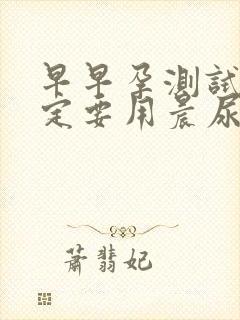 早早孕测试
定要用晨尿
萧翡妃